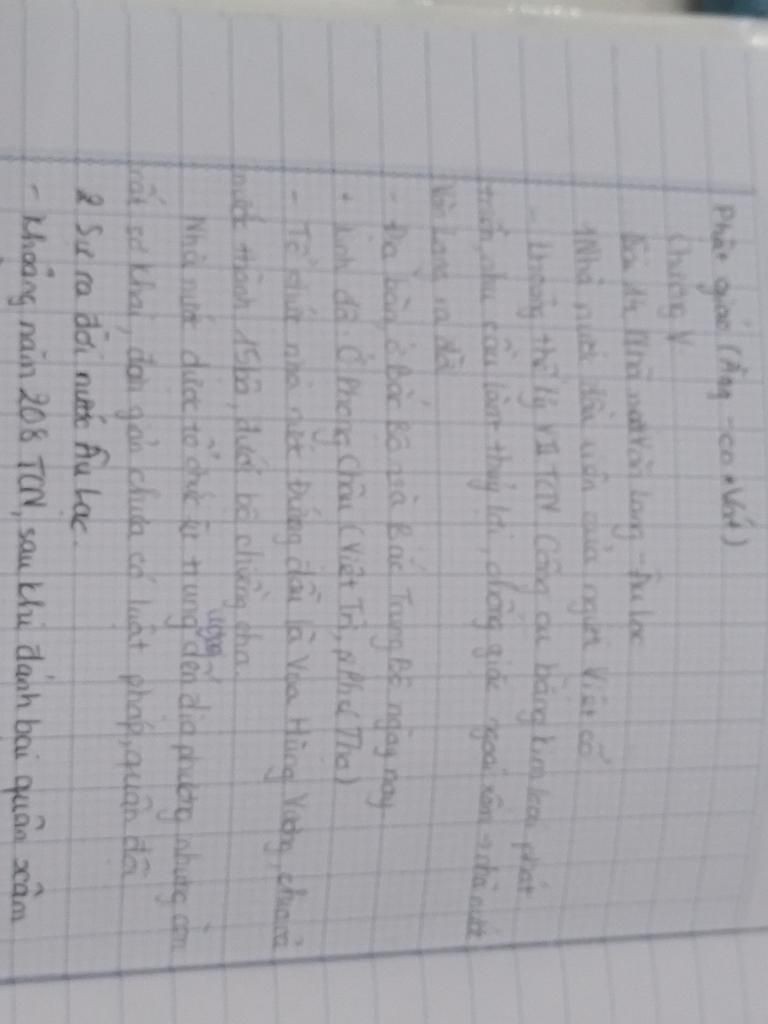 Phật giáo (Ăng-co Vát)
Chương V
Bài 14 Nhà nước Văn Lang - Âu Lạc
1 Nhà nước đầu tiên của người Việt cổ
- Khoảng thế kỷ VII TCN Công cụ bằng kim loại phát
triển, nhu cầu làm thủy lợi, chống giặc ngoại xâm → nhà nước
Văn Lang ra đời
- Địa bàn, ở Bắc Bộ và Bắc Trung Bộ ngày nay
+ kinh đô Ở Phong Châu (Việt Trì, Phú Thọ)
- Tổ chức nhà nước Đứng đầu là Vua Hùng Vương, chia cả
nước thành 15 bộ, dưới bộ chiềng chạ.
Nhà nước được tổ chức từ trung ương đến địa phương nhưng còn
rất sơ khai, đơn giản chưa có luật pháp, quân đội
2 Sự ra đời nước Âu Lạc.
- Khoảng năm 208 TCN, sau khi đánh bại quân xâm